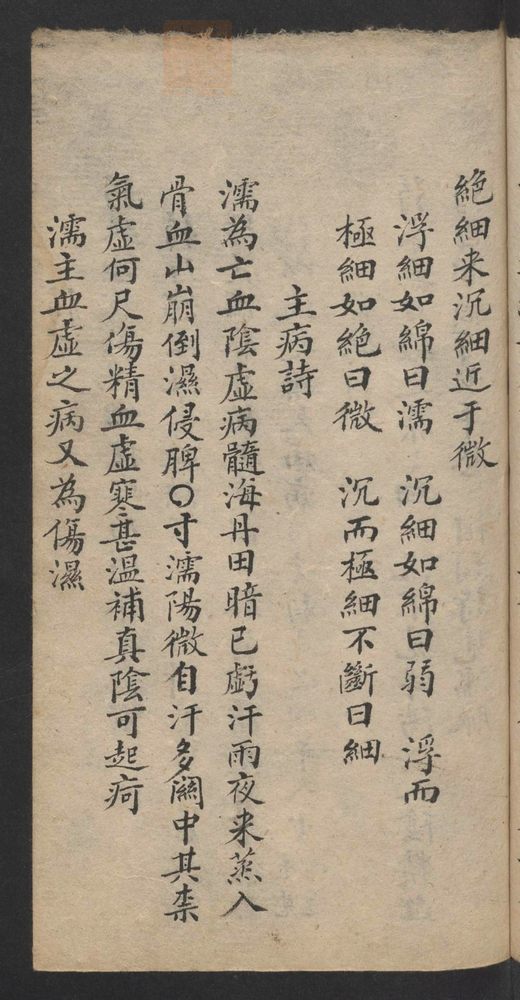 絶細来沉細近于微
浮細如綿曰濡　沉細如綿曰弱　浮而
極細如絶曰微　沉而極細不斷曰細
主病詩
濡為亡血陰虛病髓海丹田暗已虧汗雨夜来蒸入
骨血山崩倒濕侵脾〇寸濡陽微自汗多關中其柰
氣虛何尺傷精血虛寒甚溫補真陰可起疴
濡主血虛之病又為傷濕